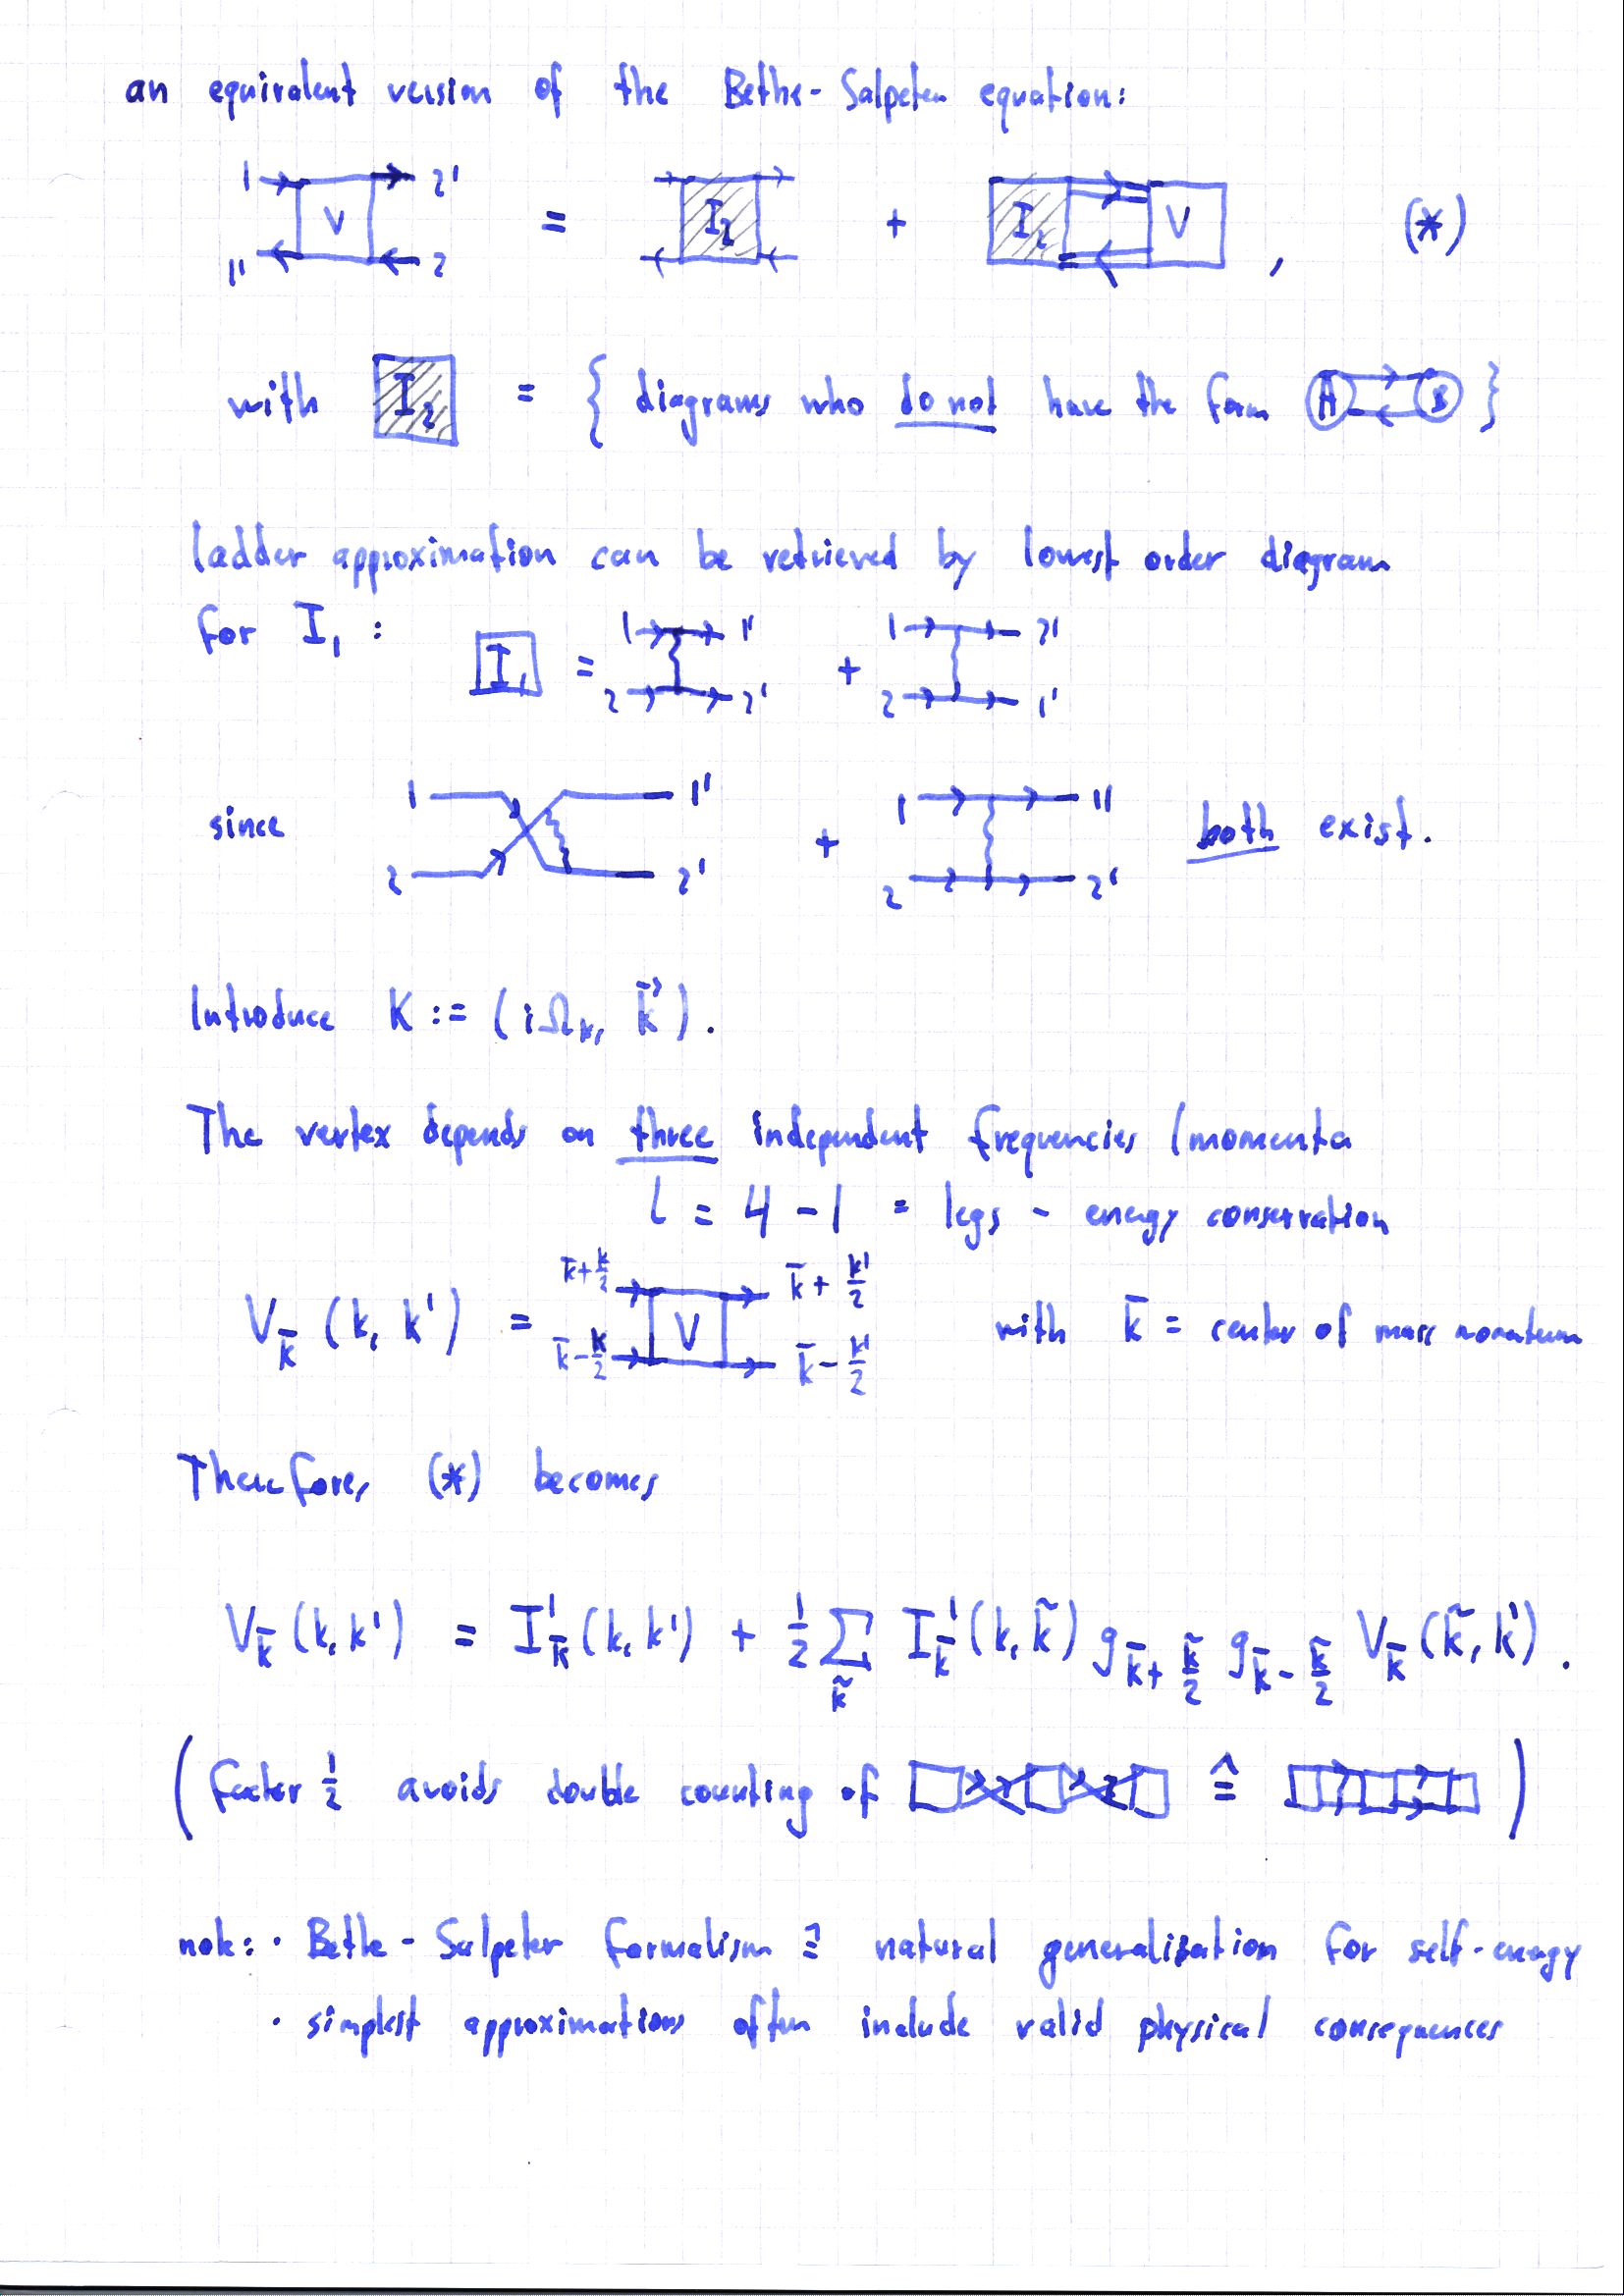 an equivalent version of the Bethe-Salpeter equation:
1 2' V = I₂ + I₂ V , (*)
1' 2
with I₂ = { diagrams who do not have the form A B }
ladder approximation can be retrieved by lowest order diagram
for I₁ : I₁ = 1 1' + 1 2'
2 2' 2 1'
since 1 1' + 1 1' both exist.
2 2' 2 2'
Introduce K := (iΩₖ, k⃗).
The vertex depends on three independent frequencies / momenta
L = 4 - 1 = legs - energy conservation
V_k̄ (k, k') = k̄+k/2 k̄-k/2 V k̄+k'/2 k̄-k'/2 with k̄ = center of mass momentum
Therefore, (*) becomes
V_k̄ (k, k') = I¹_k̄ (k, k') + ½ ∑_k̃ I¹_k̄ (k, k̃) g_k̄+k̃/2 g_k̄-k̃/2 V_k̄ (k̃, k') .
( factor ½ avoids double counting of ≙ )
note: · Bethe-Salpeter formalism ≙ natural generalization for self-energy
· simplest approximations often include valid physical consequences